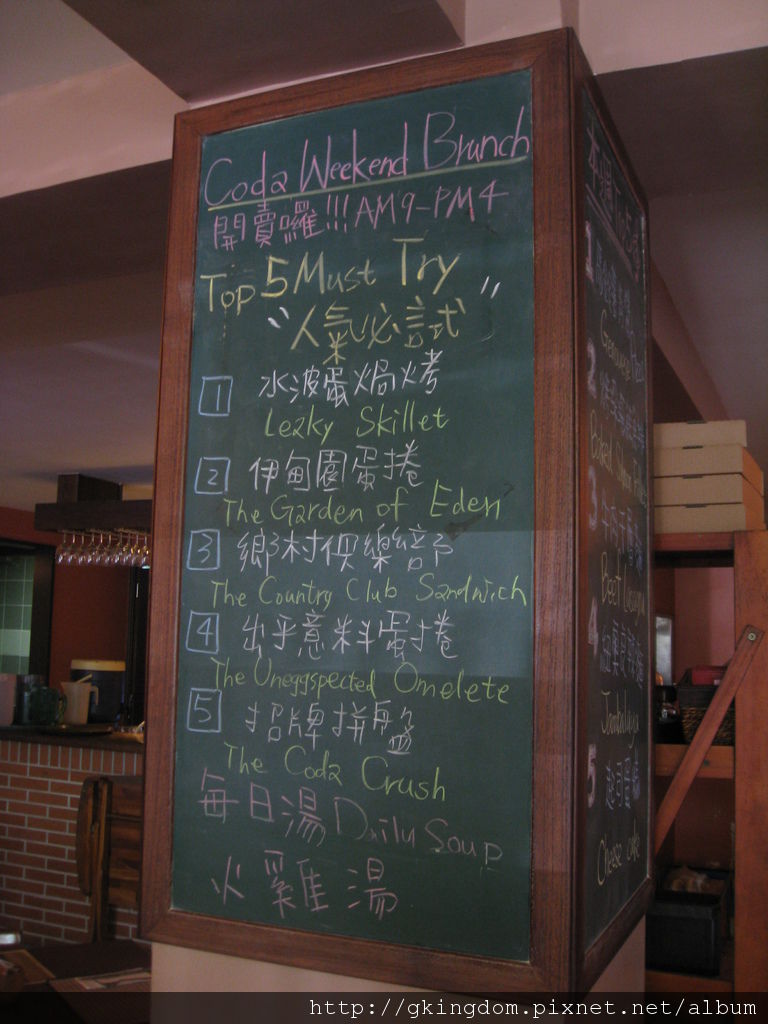 Coda Weekend Brunch
開賣囉!!! AM9-PM4
Top 5 Must Try
"人氣必試"
1 水波蛋焗烤
Leaky Skillet
2 伊甸園蛋捲
The Garden of Eden
3 鄉村俱樂部
The Country Club Sandwich
4 出乎意料蛋捲
The Uneggspected Omelete
5 招牌拼盤
The Coda Crush
每日湯 Daily Soup
火雞湯
1
2
3
Beef Lasagna
4
Jambalaya
5
Cheese cake
http://gkingdom.pixnet.net/album